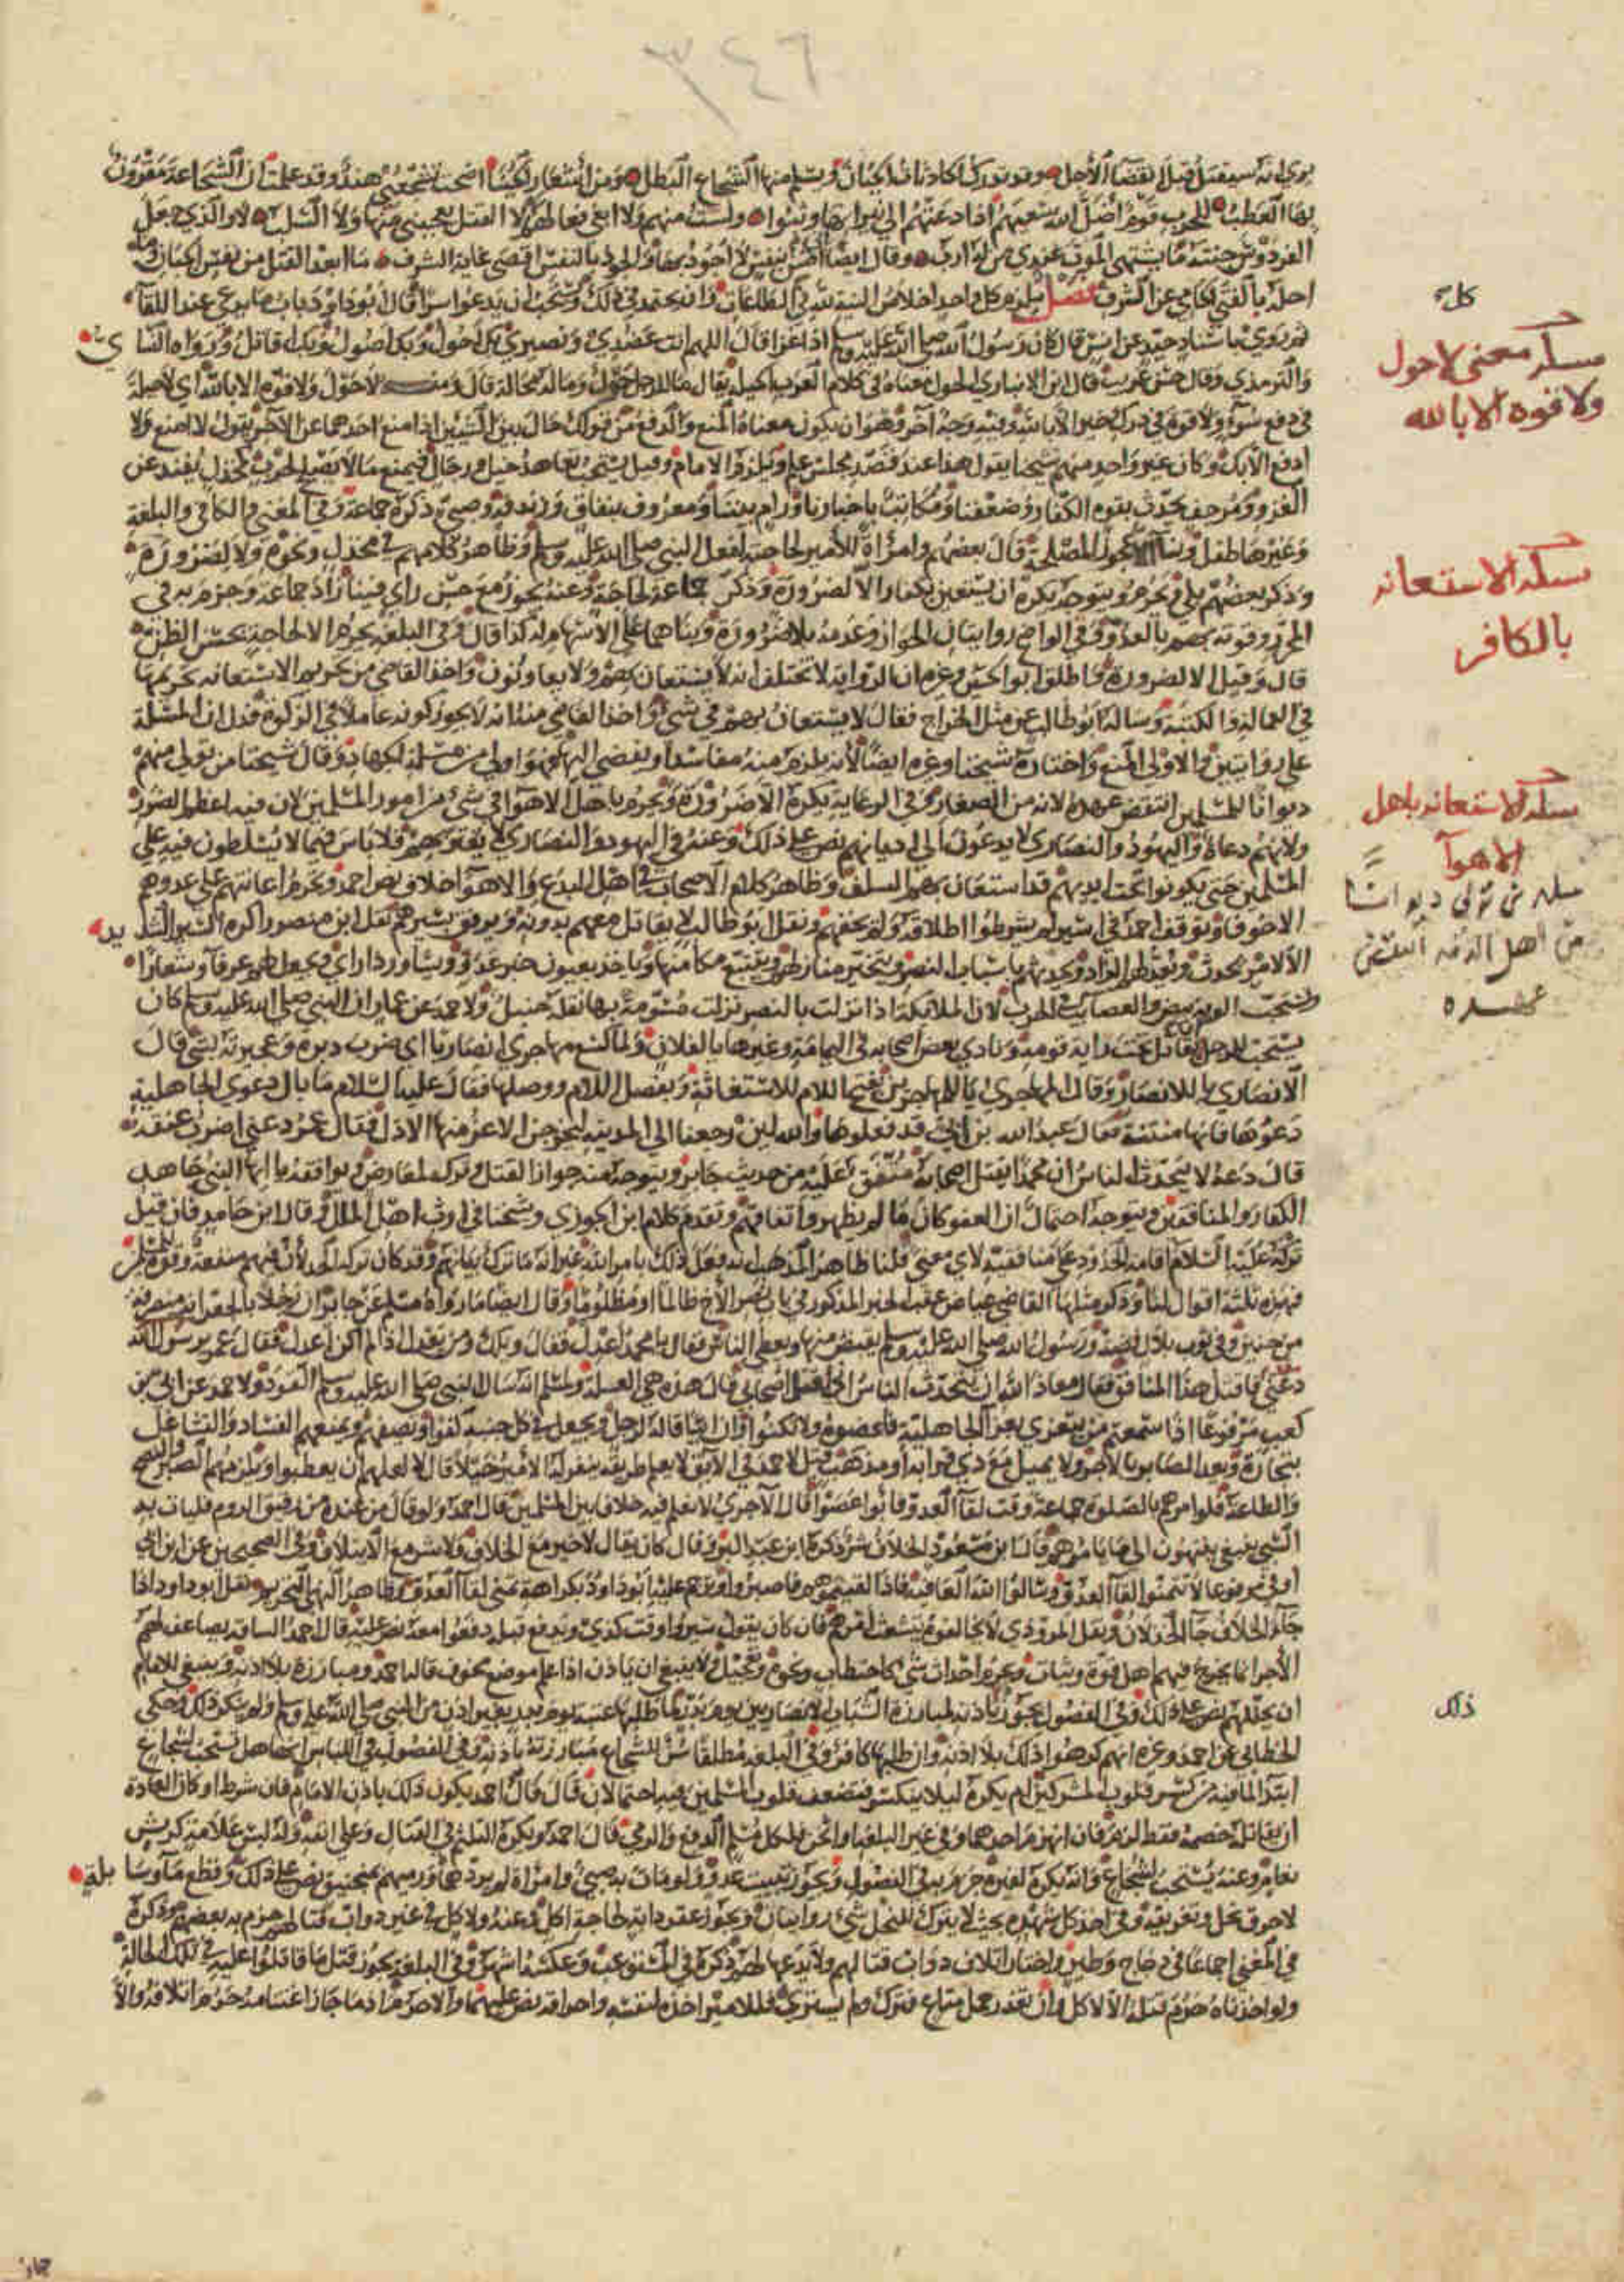 ٣٤٦
يرى انه سيقتل قبل انقضاء الأجل وقد تدرك الحادثات الجبان ويسلم منها الشجاع البطل ومن أشعار اضحت تشجعني هند وقد علمت ان الشجاعة مقرون
بها العطب للحرب قوم أضل الله سعيهم اذا دعتهم الى نيرانها وثبوا ولست منهم ولا ابغي فعالهم لا القتل يعجبني منها ولا السلب لا والذي جعل
الفردوس جنته ما يشتهي الموت عندي من له أرب وقال ايضا
احله بالفتى الحامي عن الشرف فصل يلزم كل احد اخلاص النية لله في الطاعات وان يجتهد في ذلك ويستحب ان يدعو سرا قال ابو داود باب ما يدعى عند اللقاء
ثم روى باسناد جيد عن انس قال كان رسول الله صلى الله عليه وسلم اذا غزا قال اللهم انت عضدي ونصيري بك احول وبك اصول وبك اقاتل ورواه النسائي
والترمذي وقال حسن غريب قال ابن الانباري الحول معناه في كلام العرب الحيلة يقال ما للرجل حول وما له محالة قال ومنه لا حول ولا قوة الا بالله اي لا حيلة
في دفع سوء ولا قوة في درك خير الا بالله وفيه وجه آخر وهو ان يكون معناه المنع والدفع من قولك حال بين الشيئين اذا منع احدهما عن الآخر يقول لا امنع ولا
ادفع الا بك وكان غير واحد منهم شيخنا يقول هذا عند قصد مجلس علم ويلزم الامام وقيل يستحب تعاهد خيل ورجال فيمنع ما لا يصلح لحرب كمخذل يفند عن
الغزو ومرجف يحدث بقوة الكفار وضعفنا ومكاتب باخبارنا ورام بيننا ومعروف بنفاق وزندقة وصبي ذكره جماعة وفي المغني والكافي والبلغة
وغيرها طفل ونساء الا عجوز لمصلحة قال بعضهم وامرأة للأمير لحاجته لفعل النبي صلى الله عليه وسلم وظاهر كلامهم في مخذل ونحوه ولا لضرورة
وذكر بعضهم بلى ويحرم ويتوجه يكره ان يستعين بكفار الا لضرورة وذكر جماعة لحاجة وعنه يجوز مع حسن رأي فينا زاد جماعة وجزم به في
المحرر وقوته بهم بالعدو وفي الواضح روايتان الجواز وعدمه بلا ضرورة وبناهما على الاسهام له كذا قال وفي البلغة يحرم الا لحاجة بحسن الظن
قال وقيل الا لضرورة واطلق ابو الحسين وغيره ان الرواية لا تختلف انه لا يستعان بهم ولا يعاونون واخذ القاضي من تحريم الاستعانة تحريمها
في العمالة والكتبة وسأله ابو طالب عن مثل الخراج فقال لا يستعان بهم في شيء واخذ القاضي منه انه لا يجوز كونه عاملا في الزكاة فدل ان المسألة
على روايتين والاولى المنع واختاره شيخنا وغيره ايضا لانه يلزم منه مفاسد او يفضي اليها فهو اولى من مسألة الجهاد وقال شيخنا من تولى منهم
ديوانا للمسلمين انتقض عهده لانه من الصغار وفي الرعاية يكره الا ضرورة ويحرم باهل الاهواء في شيء من امور المسلمين لان فيه اعظم الضرر
ولانهم دعاة واليهود والنصارى لا يدعون الى اديانهم نص على ذلك وعنه في اليهود والنصارى لا يغتر بهم فلا باس فيما لا يسلطون فيه على
المسلمين حتى يكونوا تحت ايديهم قد استعان بهم السلف وظاهر كلام الاصحاب في اهل البدع والاهواء خلاف نص احمد وتحرم اعانتهم على عدوهم
الا خوفا وتوقف احمد في اسير لم يشرطوا اطلاقه ولم يخفهم ونقل ابو طالب لا يقاتل معهم بدونه ويرفق بسيرهم نقل ابن منصور اكره السير الشديد
الا لامر يحدث ويعد لهم الزاد ويحدثهم باسباب النصر ويتخير منازلهم ويتتبع مكامنها وياخذ بعيون خبر عدو ويشاور ذا راي ويجعل لهم عرفاء وشعارا
ويستحب الويه بيض والعصائب في الحرب لان الملائكة اذا نزلت بالنصر نزلت مسومة بها نقله حنبل ولاحمد عن عمار ان النبي صلى الله عليه وسلم كان
يستحب للرجل يقاتل تحت راية قومه ونادى بعض اصحابه في اليمامة وغيرها يا لفلان ولما كسع مهاجري انصاريا اي ضرب دبره وعجيزته بشيء قال
الانصاري يا للانصار وقال المهاجري يا للمهاجرين بفتح اللام للاستغاثة وبفصل اللام ووصلها فقال عليه السلام ما بال دعوى الجاهلية
دعوها فانها منتنة فقال عبد الله بن ابي قد فعلوها والله لئن رجعنا الى المدينة ليخرجن الاعز منها الاذل فقال عمر دعني اضرب عنقه
قال دعه لا يتحدث الناس ان محمدا يقتل اصحابه متفق عليه من حديث جابر ويتوجه منه جواز القتل وتركه لمعارض ويوافقه يا ايها النبي جاهد
الكفار والمنافقين ويتوجه احتمال ان العفو كان ما لم يظهروا نفاقهم وتقدم كلام ابن الجوزي وشيخنا في ارث اهل الملل وقال ابن حامد فان قيل
تركه عليه السلام اقامة الحدود على منافقيه لاي معنى قلنا ظاهر المذهب انه فعل ذلك بامر الله غير انه ما ترك بيانهم وقد كان ترك الحد لأن فيهم منفعة وقوة للمسلمين
فهذه ثلثة اقوال لنا وذكر مثلها القاضي عياض عقب الخبر المذكور في باب نصر الأخ ظالما او مظلوما وقال ايضا ما رواه مسلم عن جابر ان رجلا بالجعرانة منصرفه
من حنين وفي ثوب بلال فضة ورسول الله صلى الله عليه وسلم يقبض منها ويعطي الناس فقال يا محمد اعدل فقال ويلك ومن يعدل اذا لم اكن اعدل فقال عمر يرسول الله
دعني فاقتل هذا المنافق فقال معاذ الله ان يتحدث الناس اني اقتل اصحابي قال هذه هي العلة ولمسلم انه سال النبي صلى الله عليه وسلم القود ولاحمد عن ابي بن
كعب مرفوعا اذا سمعتم من يتعزى بعزاء الجاهلية فاعضوه ولا تكنوا وان ابيا قاله لرجل ويجعل في كل جنبة كفوا ويصفهم ويمنعهم الفساد والتشاغل
بتجارة ويعد الصابر بالاجر ولا يميل مع ذي قرابة او مذهب قيل لاحمد في الآبق لا يعلم طريقه ينفر له الأمير خيلا قال لا لعلهم ان يعطبوا ويلزمهم الصبر والنصح
والطاعة فلو امرهم بالصلوة جماعة وقت لقاء العدو فابوا عصوا قال الآجري لا نعلم فيه خلافا بين المسلمين قال احمد ولو قال من عنده من رقيق الروم فليات به
السبي ينبغي ينتهون الى ما يامرهم قال ابن مسعود الخلاف شر ذكره ابن عبد البر وقال كان يقال لا خير مع الخلاف ولا شر مع الائتلاف وفي الصحيحين عن ابن ابي
اوفى مرفوعا لا تتمنوا لقاء العدو وسلوا الله العافية فاذا لقيتموهم فاصبروا وترجم عليه ابو داود بكراهة تمني لقاء العدو وظاهر النهي التحريم نقل ابو داود اذا
جاء الخلاف جاء الخذلان ونقل المروذي لا يخالفوه يتشعث امرهم فان كان يقول سيروا وقت كذى ويدفع قبله دفعوا معه نص عليه قال احمد الساقة يضاعف لهم
الأجر انما يخرج فيهم اهل قوة وثبات ويحرم احداث شيء كاحتطاب ونحوه وتعجيل ولا ينبغي ان ياذن اذا علم موضع مخوف قاله احمد ومبارزة بلا اذنه وينبغي للامام
ان يخللهم نص على ذلك وفي الفصول يجوز باذنه لمبارزة الشباب الانصاريين يوم بدر لما طلبها عتبة يوم بدر بغير اذن من النبي صلى الله عليه وسلم ولم ينكر ذلك وحكى
الخطابي عن احمد وغيره انهم كرهوا ذلك بلا اذنه وان طلبها كافر وفي البلغة مطلقا سن للشجاع مبارزته باذنه وفي الفصول في اللباس انها هل تستحب لشجاع
ابتداء لما فيه من كسر قلوب المشركين ام يكره ليلا ينكسر فتضعف قلوب المسلمين فيه احتمالان قال قال احمد يكون ذلك باذن الامام فان شرط او كان العادة
ان يقاتله خصمه فقط لزم فان انهزم احدهما وفي غير البلغة او اثخن فلكل مسلم الدفع والرمي قال احمد ويكره التلثم في القتال وعلى انفه وله لبس علامة كريش
نعام وعنه يستحب لشجاع وانه يكره لغيره جزم به في الفصول ويجوز تبييت عدو ولو مات به صبي وامرأة لم يردهما ورميهم بمنجنيق نص على ذلك وقطع ماء وسابلة
لا حرق نحل وتغريقه وفي اخذ كل شهده بحيث لا يترك للنحل شيء روايتان ويجوز عقر دابة لحاجة اكل وعنه ولا كل في غير دواب قتالهم جزم به بعضهم وذكره
في المغني اجماعا في دجاج وطير واختار اتلاف دواب قتالهم ولا يدعها لهم ذكره في المستوعب وعكسه اشهر وفي البلغة يجوز قتل ما قاتلوا عليه في تلك الحالة
ولو اخذناه حرم قتله الا لاكل وان تعذر حمل متاع فترك ولم يشتري فللامير اخذه لنفسه واحراقه نص عليهما والا حرم اذ ما جاز اغتنامه حرم اتلافه والا
كل
مسلة معنى لا حول
ولا قوة الا بالله
مسلة الاستعانة
بالكافر
مسلة الاستعانة باهل
الاهوآ
مسلة من تولى ديوانا
من اهل الذمة انتقض
عهده
ذلك
جاز